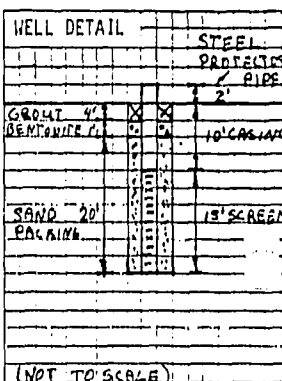 WELL DETAIL
STEEL
PROTECTOR
PIPE
2'
GROUT 4'
BENTONITE 1'
10' CASING
SAND 20'
PACKING
15' SCREEN
(NOT TO SCALE)